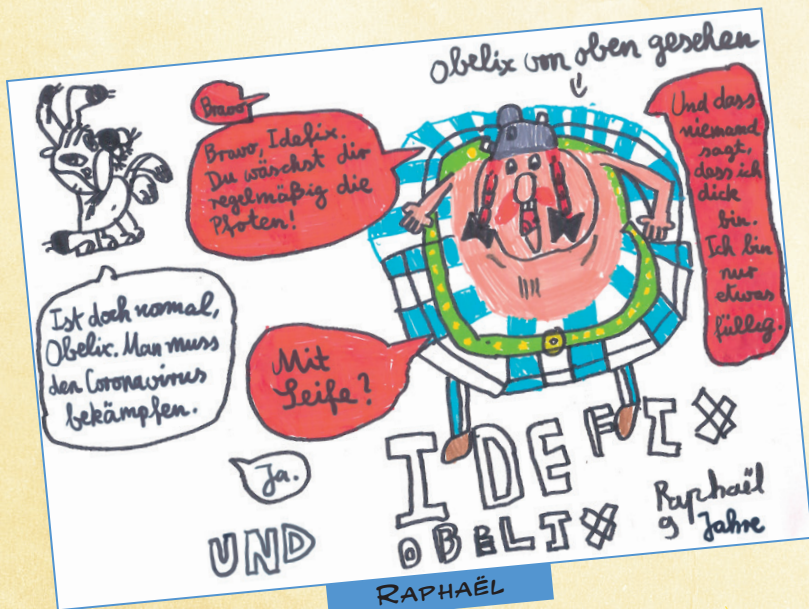 Obelix von oben gesehen
Bravo
Bravo, Idefix.
Du wäschst dir
regelmäßig die
Pfoten!
Und dass
niemand
sagt,
dass ich
dick
bin.
Ich bin
nur
etwas
füllig.
Ist doch normal,
Obelix. Man muss
den Coronavirus
bekämpfen.
Mit
Seife?
Ja.
IDEFIX
UND
OBELIX
Raphaël
9 Jahre
RAPHAËL